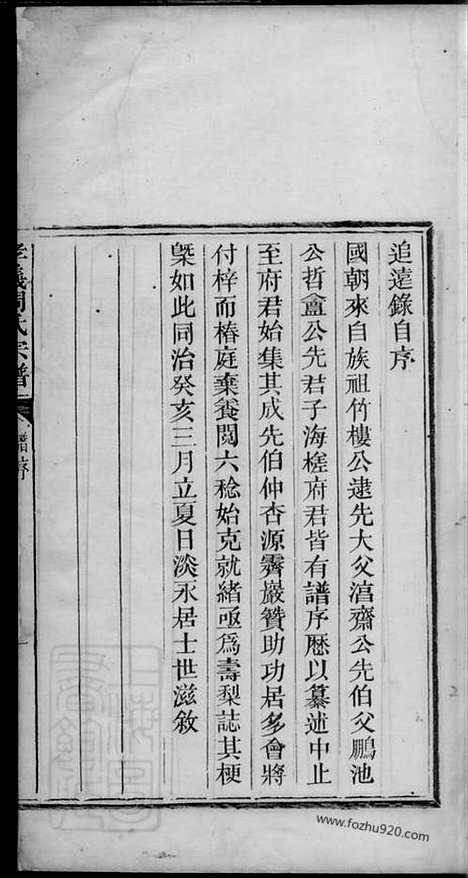 追遠錄自序
國朝來自族祖竹樓公逮先大父滀齋公先伯父鵬池
公哲盦公先君子海槎府君皆有譜序歷以纂述中止
至府君始集其成先伯仲杏源霽巖贊助功居多會將
付梓而椿庭棄養閱六稔始克就緒亟為壽梨誌其梗
槩如此同治癸亥三月立夏日淡永居士世滋敘
孝義周氏宗譜
譜序
www.fozhu920.com